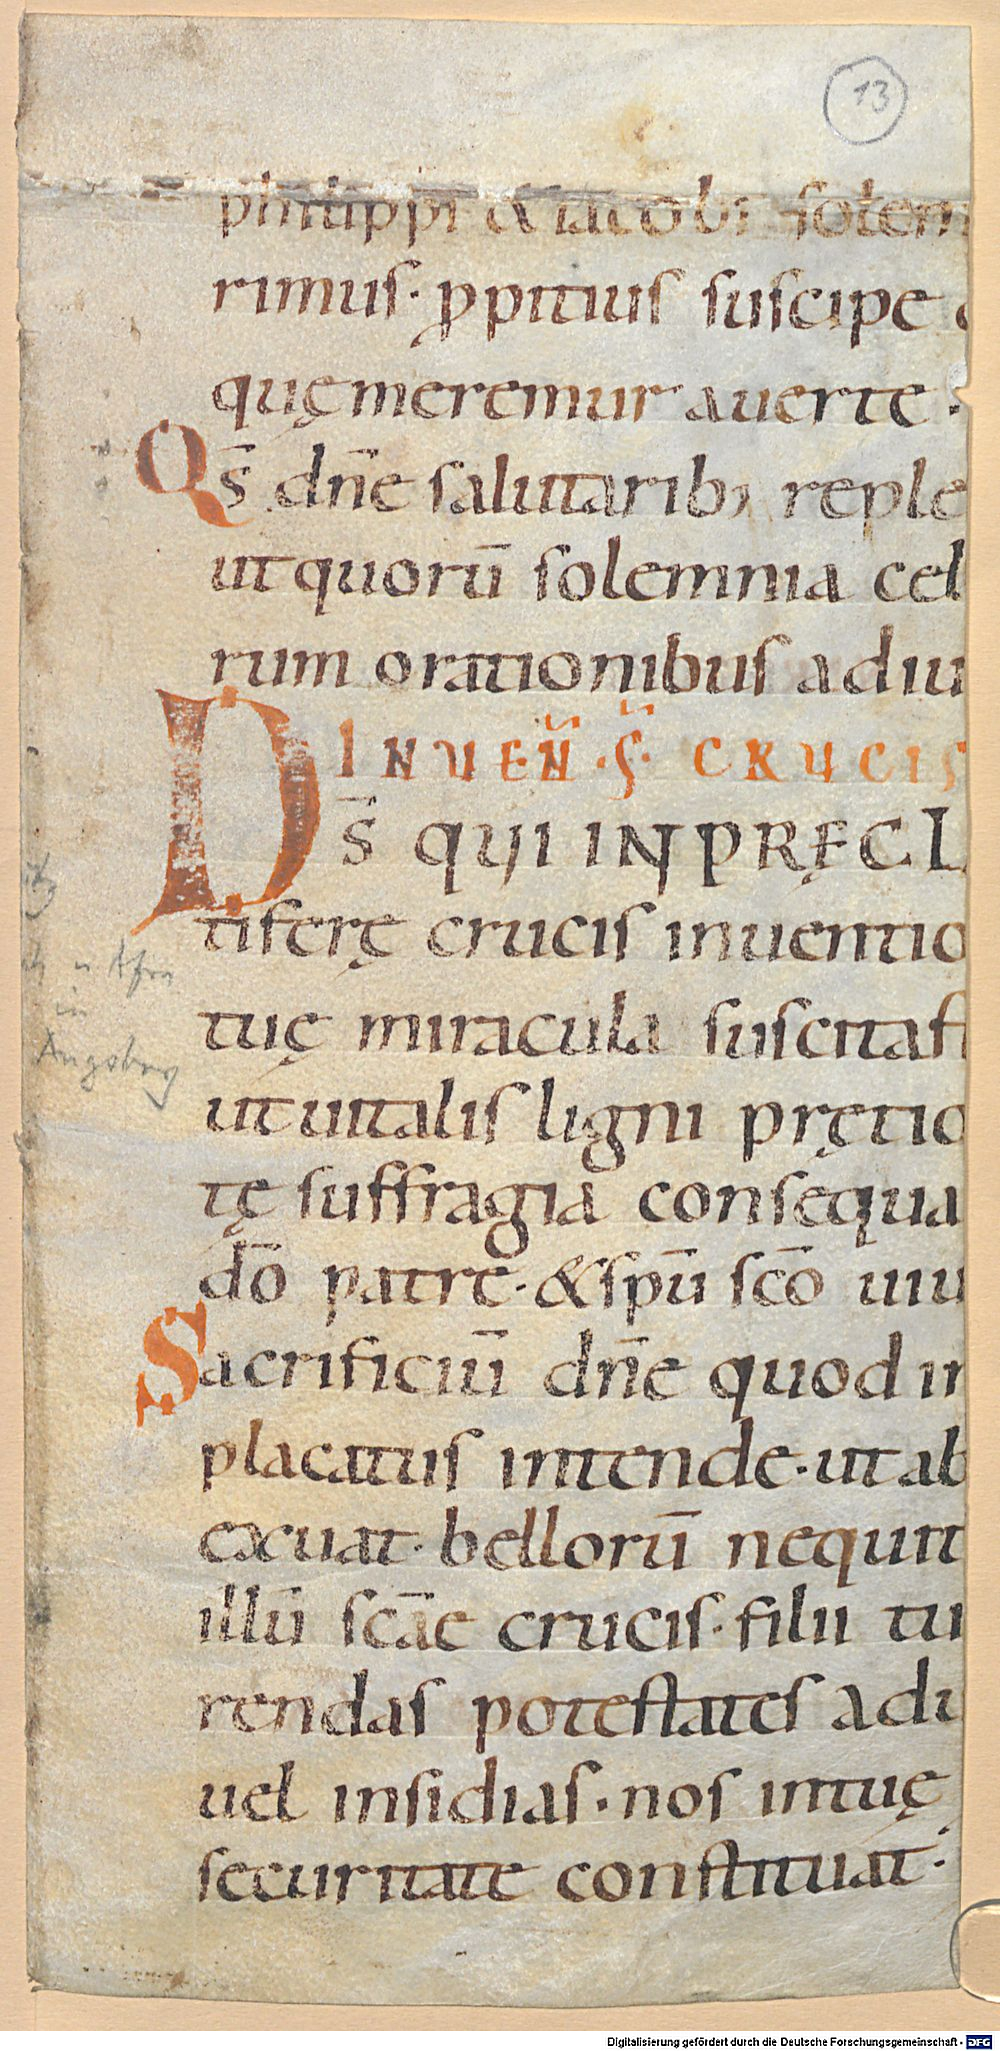 13
philippi & iacobi solem
rimus· ꝓpitius suscipe
quę meremur auerte·
Qs̄ dn̄e salutarib; reple
ut quorū solemnia cel
rum orationibus adiu
INUEN̄·S̄· CRUCIS
Ds̄ QUI IN PRĘCL
tiferę crucis inuentio
tuę miracula suscitast
ut uitalis ligni prętio
tę suffragia consequa
dō patre· & spū scō uiu
Sacrificiū dn̄e quod in
placatus intende· ut ab
exuat· bellorū nequit
illū scāe crucis· filii tu
rendas potestates adu
uel insidias· nos in tuę
securitate constituat·
u Afra
in
Augsburg
Digitalisierung gefördert durch die Deutsche Forschungsgemeinschaft - DFG